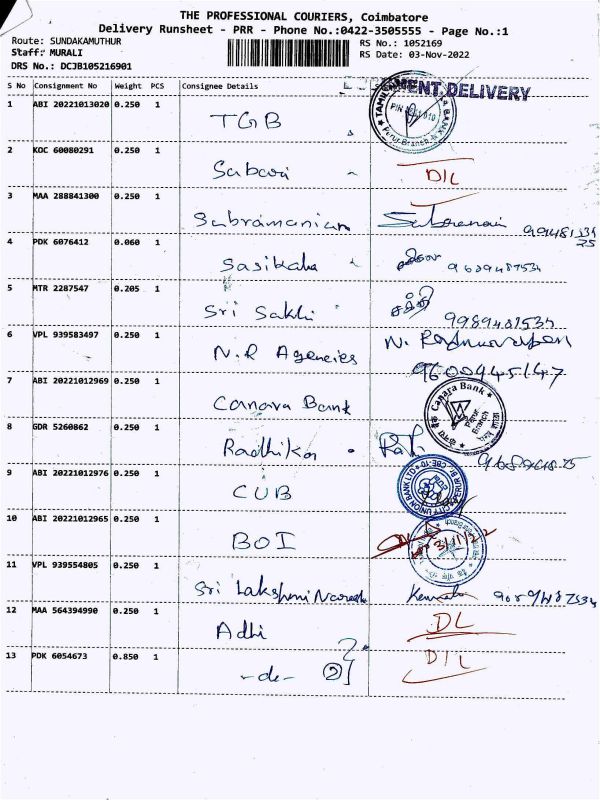 THE PROFESSIONAL COURIERS, Coimbatore
Delivery Runsheet - PRR - Phone No.:0422-3505555 - Page No.:1
Route: SUNDAKAMUTHUR
RS No.: 1052169
Staff: MURALI
RS Date: 03-Nov-2022
DRS No.: DCJB105216901
S No Consignment No Weight PCS Consignee Details
DELIVERY
1 ABI 20221013020 0.250 1 TGB
2 KOC 60080291 0.250 1 Sabari D/L
3 MAA 288841300 0.250 1 Subramanian
4 PDK 6076412 0.060 1 Sasikala
5 MTR 2287547 0.205 1 Sri Sakhi சக்தி
6 VPL 939583497 0.250 1 N.R Agencies
9600945147
7 ABI 20221012969 0.250 1 Canara Bank
Canara Bank
8 GDR 5260862 0.250 1 Radhika
9 ABI 20221012976 0.250 1 CUB
CITY UNION BANK LTD
10 ABI 20221012965 0.250 1 BOI
11 VPL 939554805 0.250 1 Sri Lakshmi
12 MAA 564394990 0.250 1 Adhi DL
13 PDK 6054673 0.850 1 -do- 2 D/L